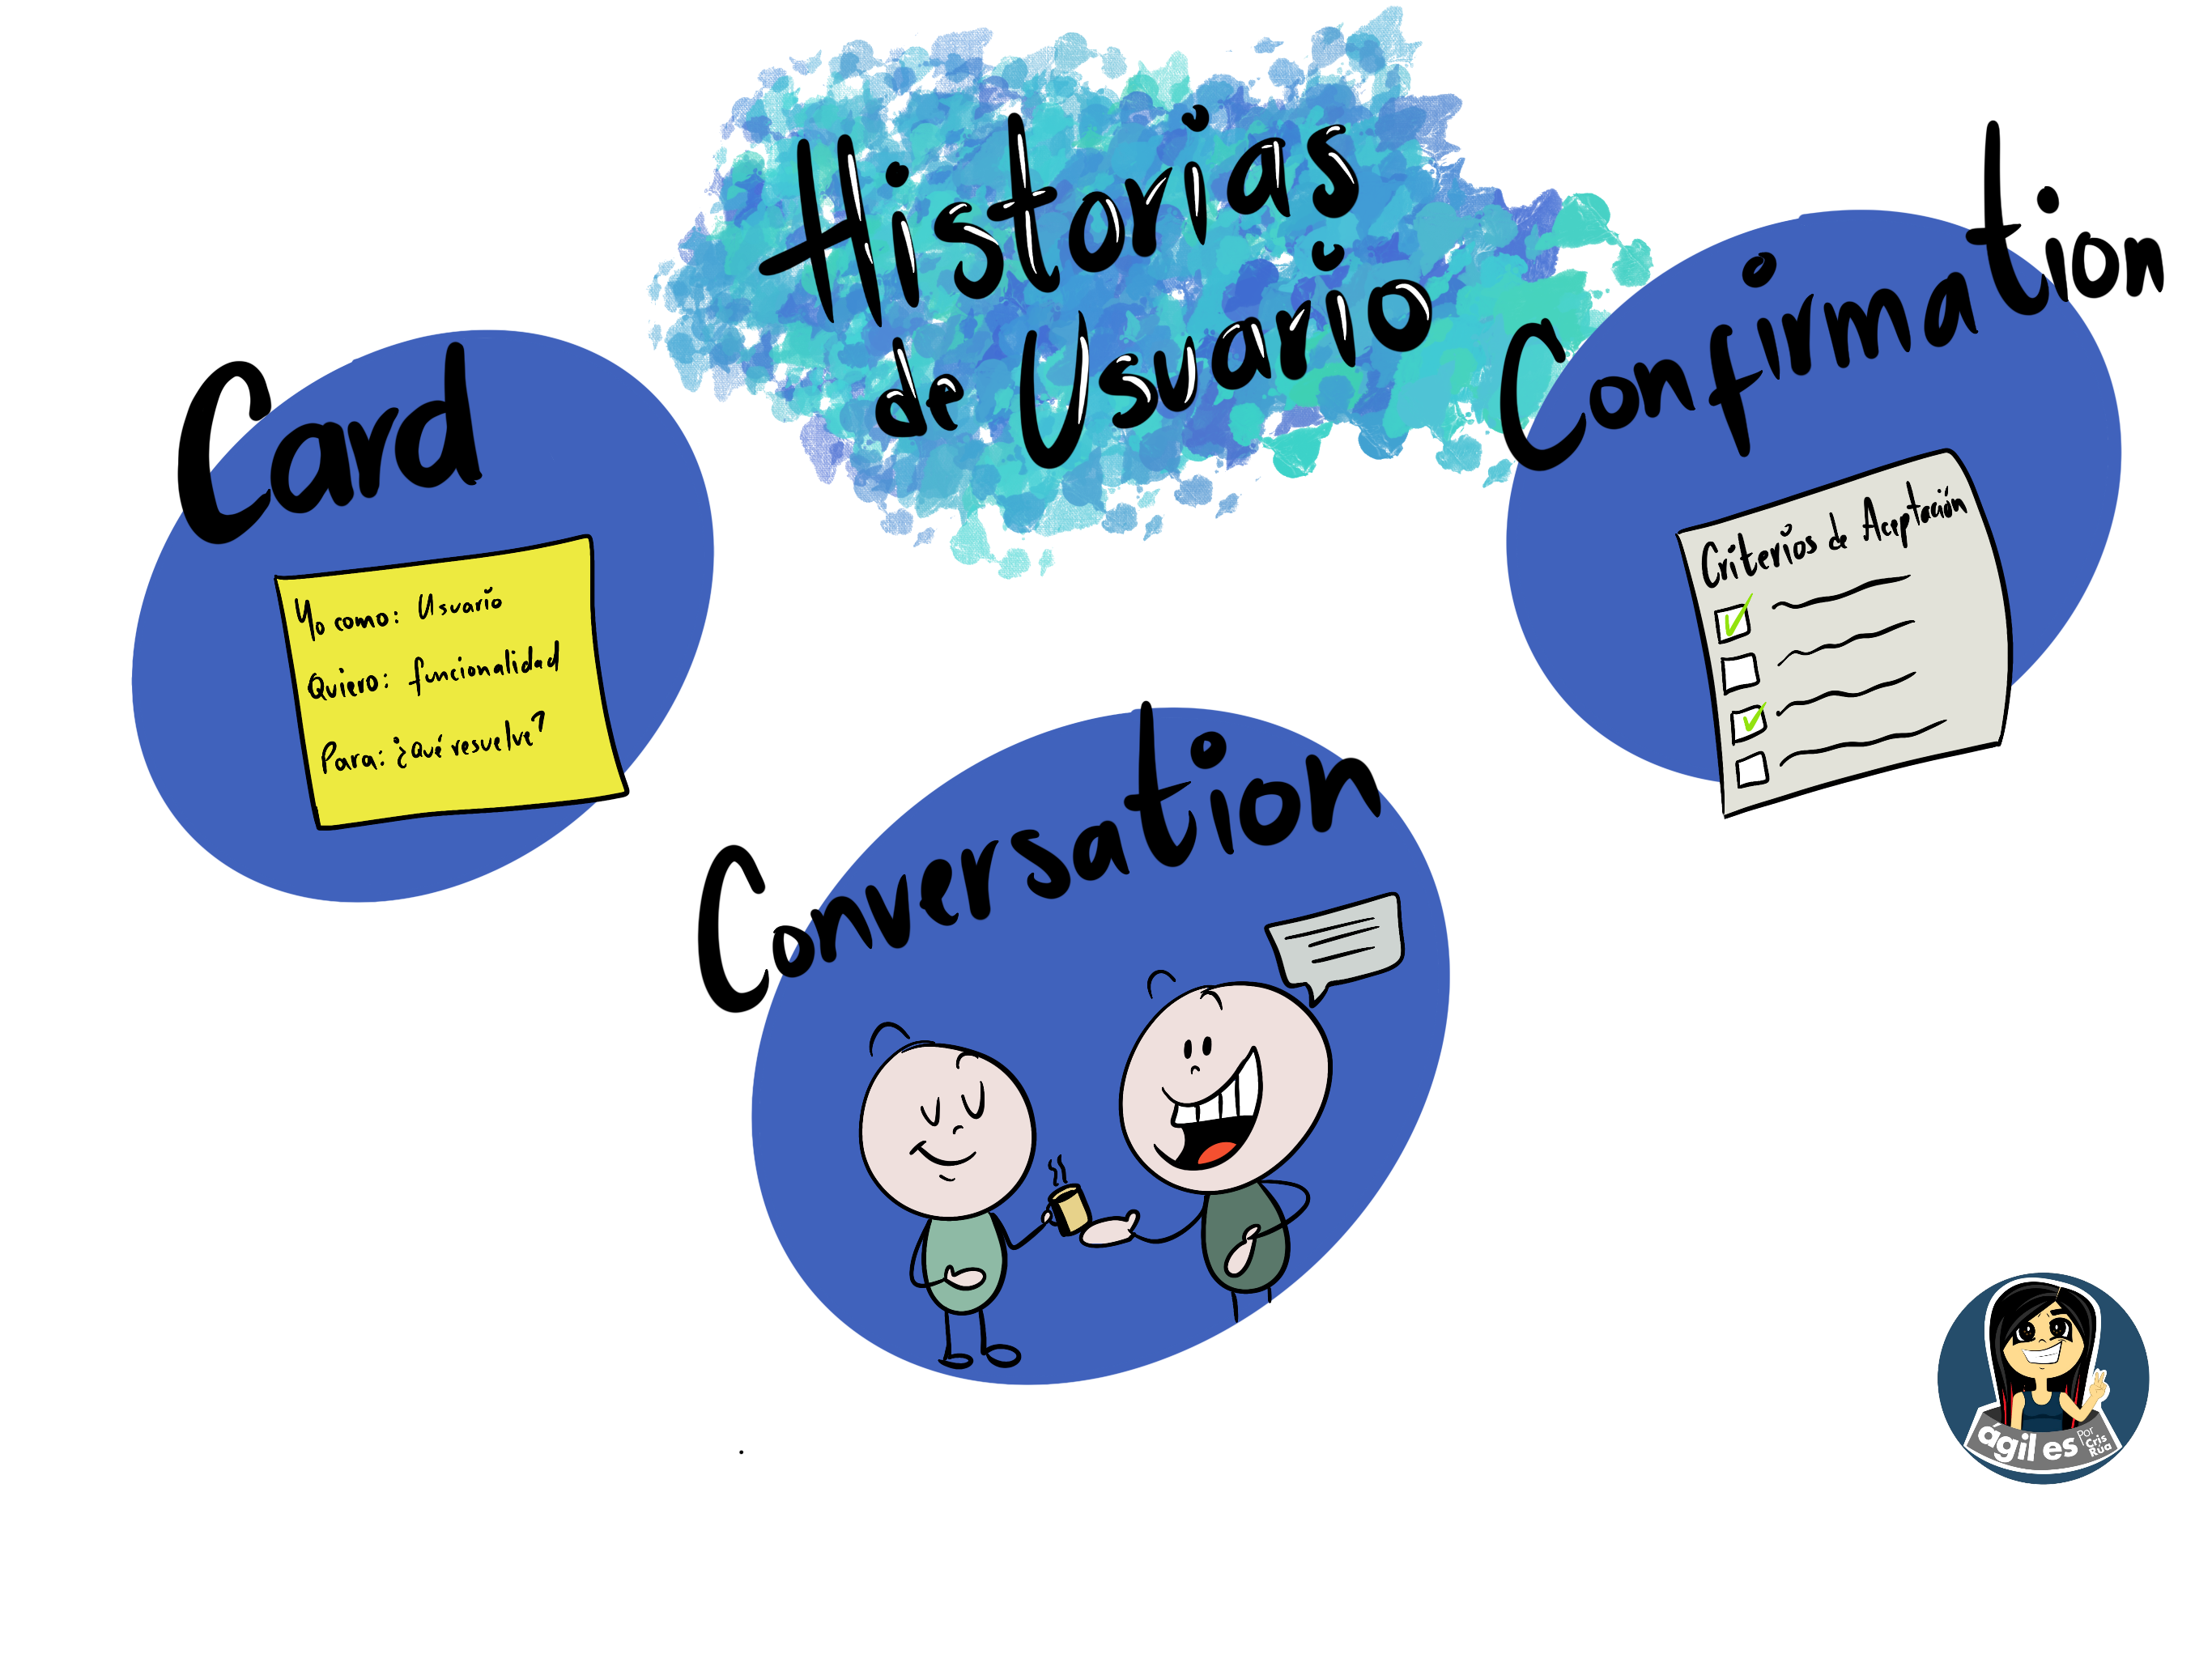 Historias
de Usuario
Card
Yo como: Usuario
Quiero: funcionalidad
Para: ¿qué resuelve?
Conversation
Confirmation
Criterios de Aceptación
ágil es
Por
Cris
Rúa